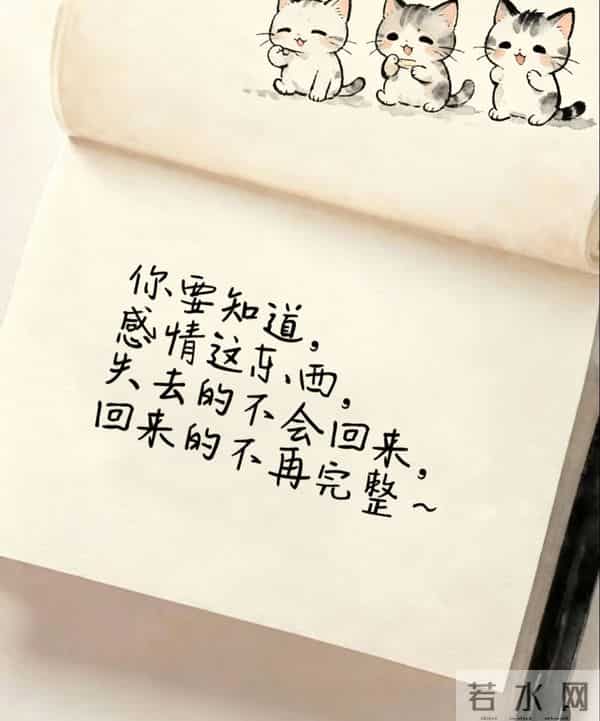 你要知道，
感情这东西，
失去的不会回来，
回来的不再完整～
若水网